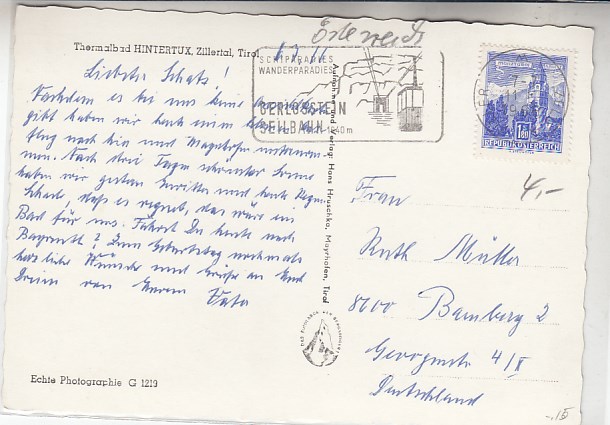 Österreich
Thermalbad HINTERTUX, Zillertal, Tirol
SCHIPARADIES
WANDERPARADIES
GERLOSSTEIN
SEILBAHN
1640m
REPUBLIK ÖSTERREICH
Liebster Schatz!
Nachdem es bei uns keine
gibt haben wir heute einen
flug nach hier und Mayrhofen unternom-
men. Nach drei Tagen schönster Sonne
haben wir gestern Gewitter und heute Regen.
Schade, daß es regnet, das wäre ein
Bad für uns. Fährst Du heute nach
Bayreuth? Zum Geburtstag nochmals
herzliche Wünsche und Grüße an Euch
Dreien von Eurem Vata
Aufnahme und Verlag: Hans Hruschka, Mayrhofen, Tirol
4,-
Frau
Ruth Müller
8600 Bamberg 2
Georgenstr 4/II
Deutschland
Echte Photographie G 1219
-.15